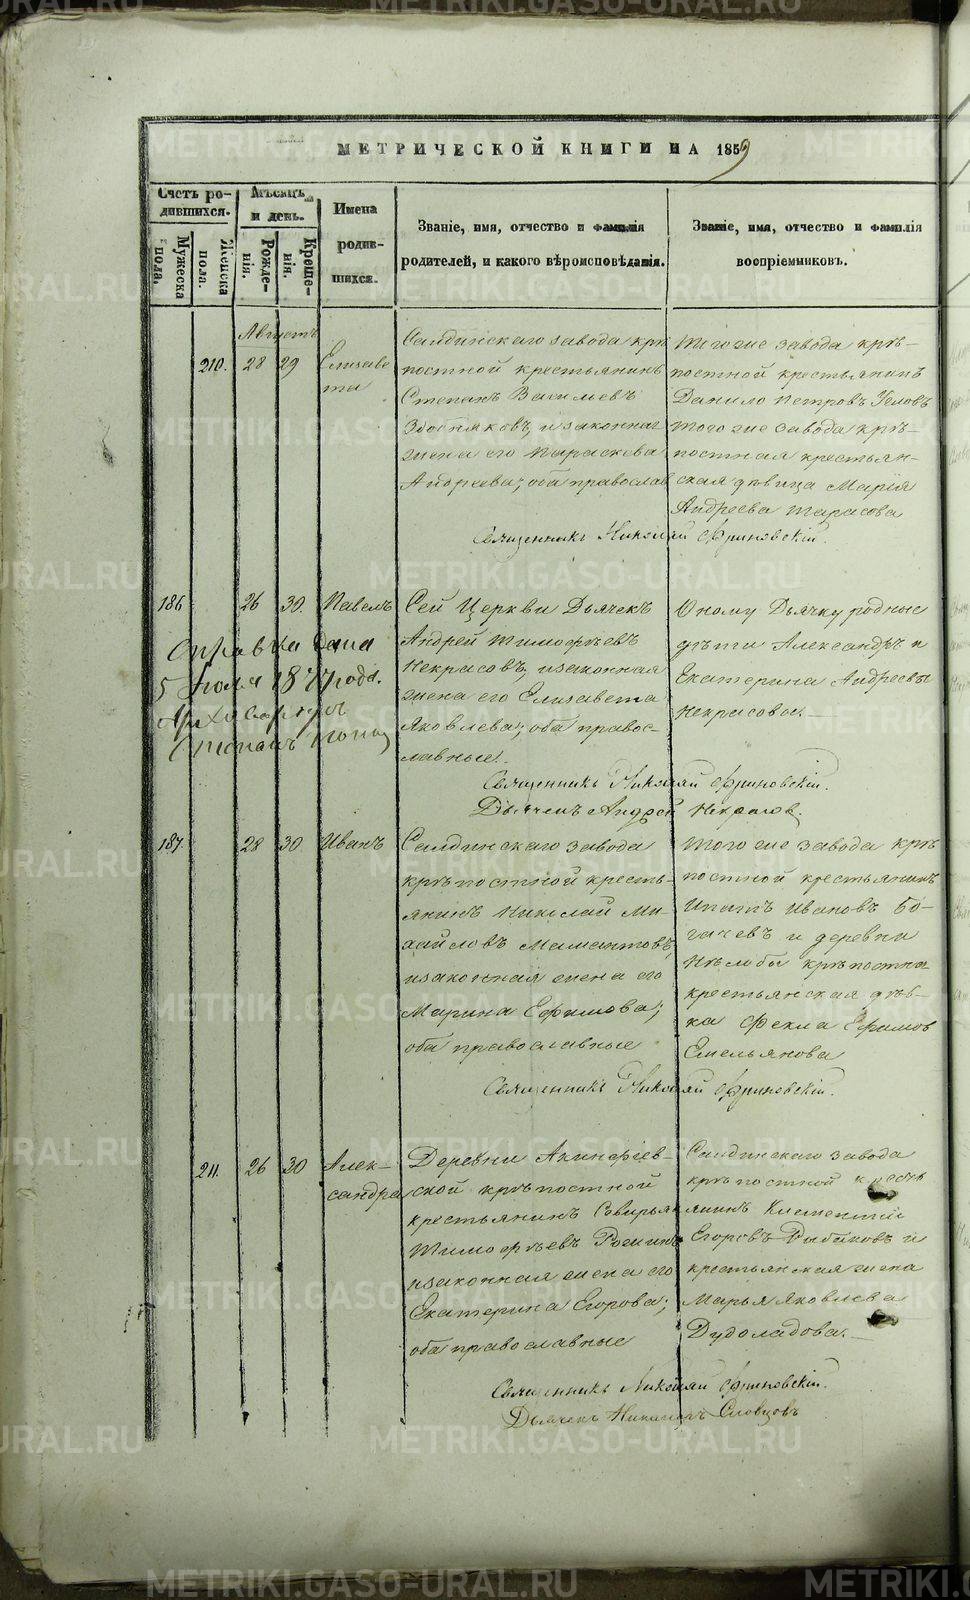 МЕТРИЧЕСКОЙ КНИГИ НА 1859
Счетъ ро-
дившихся.
Мужеска
пола.
Женска
пола.
Мѣсяцъ
и день.
Рожде-
нія.
Креще-
нія.
Имена
родив-
шихся.
Званіе, имя, отчество и фамилія
родителей, и какого вѣроисповѣданія.
Званіе, имя, отчество и фамилія
воспріемниковъ.
Августъ
210. 28 29 Елизаве
та
Салдинскаго завода крѣ
постной крестьянинъ
Степанъ Васильевъ
и законная
жена его Параскева
Андреева; оба православ
Того же завода крѣ-
постной крестьянинъ
Данило Петровъ
того же завода крѣ-
постная крестьян-
ская дѣвица Марія
Андреева Тарасова
Священникъ Николай Фриновскій.
186 26 30. Павелъ
Сей Церкви Дьячекъ
Андрей Тимофѣевъ
Некрасовъ, и законная
жена его Елизавета
Яковлева; оба правос-
лавные.
Оному Дьячку родные
дѣти Александръ и
Екатерина Андреевы
Некрасовы.
Справка дана
5 Июля 1877 года.
Архиваріусъ
Степанъ Попов
Священникъ Николай Фриновскій.
Дьячекъ Андрей Некрасов.
187 28 30 Иванъ
Салдинскаго завода
крѣпостной кресть-
янинъ Николай Ми-
хайловъ Мамонтовъ,
и законная жена его
Марина Ефимова;
оба православные
Того же завода крѣ
постной крестьянинъ
Ипатъ Ивановъ Бо-
гачевъ и деревни
Нелобы крѣпостна
крестьянская дѣв-
ка Фекла Ефимов
Емельянова
Священникъ Николай Фриновскій.
211. 26 30 Алек-
сандра
Деревни Акинфіев-
ской крѣпостной
крестьянинъ Северьян
Тимофѣевъ
и законная жена его
Екатерина Егорова;
оба православные
Салдинскаго завода
крѣпостной кресть
янинъ Климентій
Егоровъ Рыбаковъ и
крестьянская жена
Марья Яковлева
Дудоладова.
Священникъ Николай Фриновскій.
Дьячекъ Словцовъ
METRIKI.GASO-URAL.RU